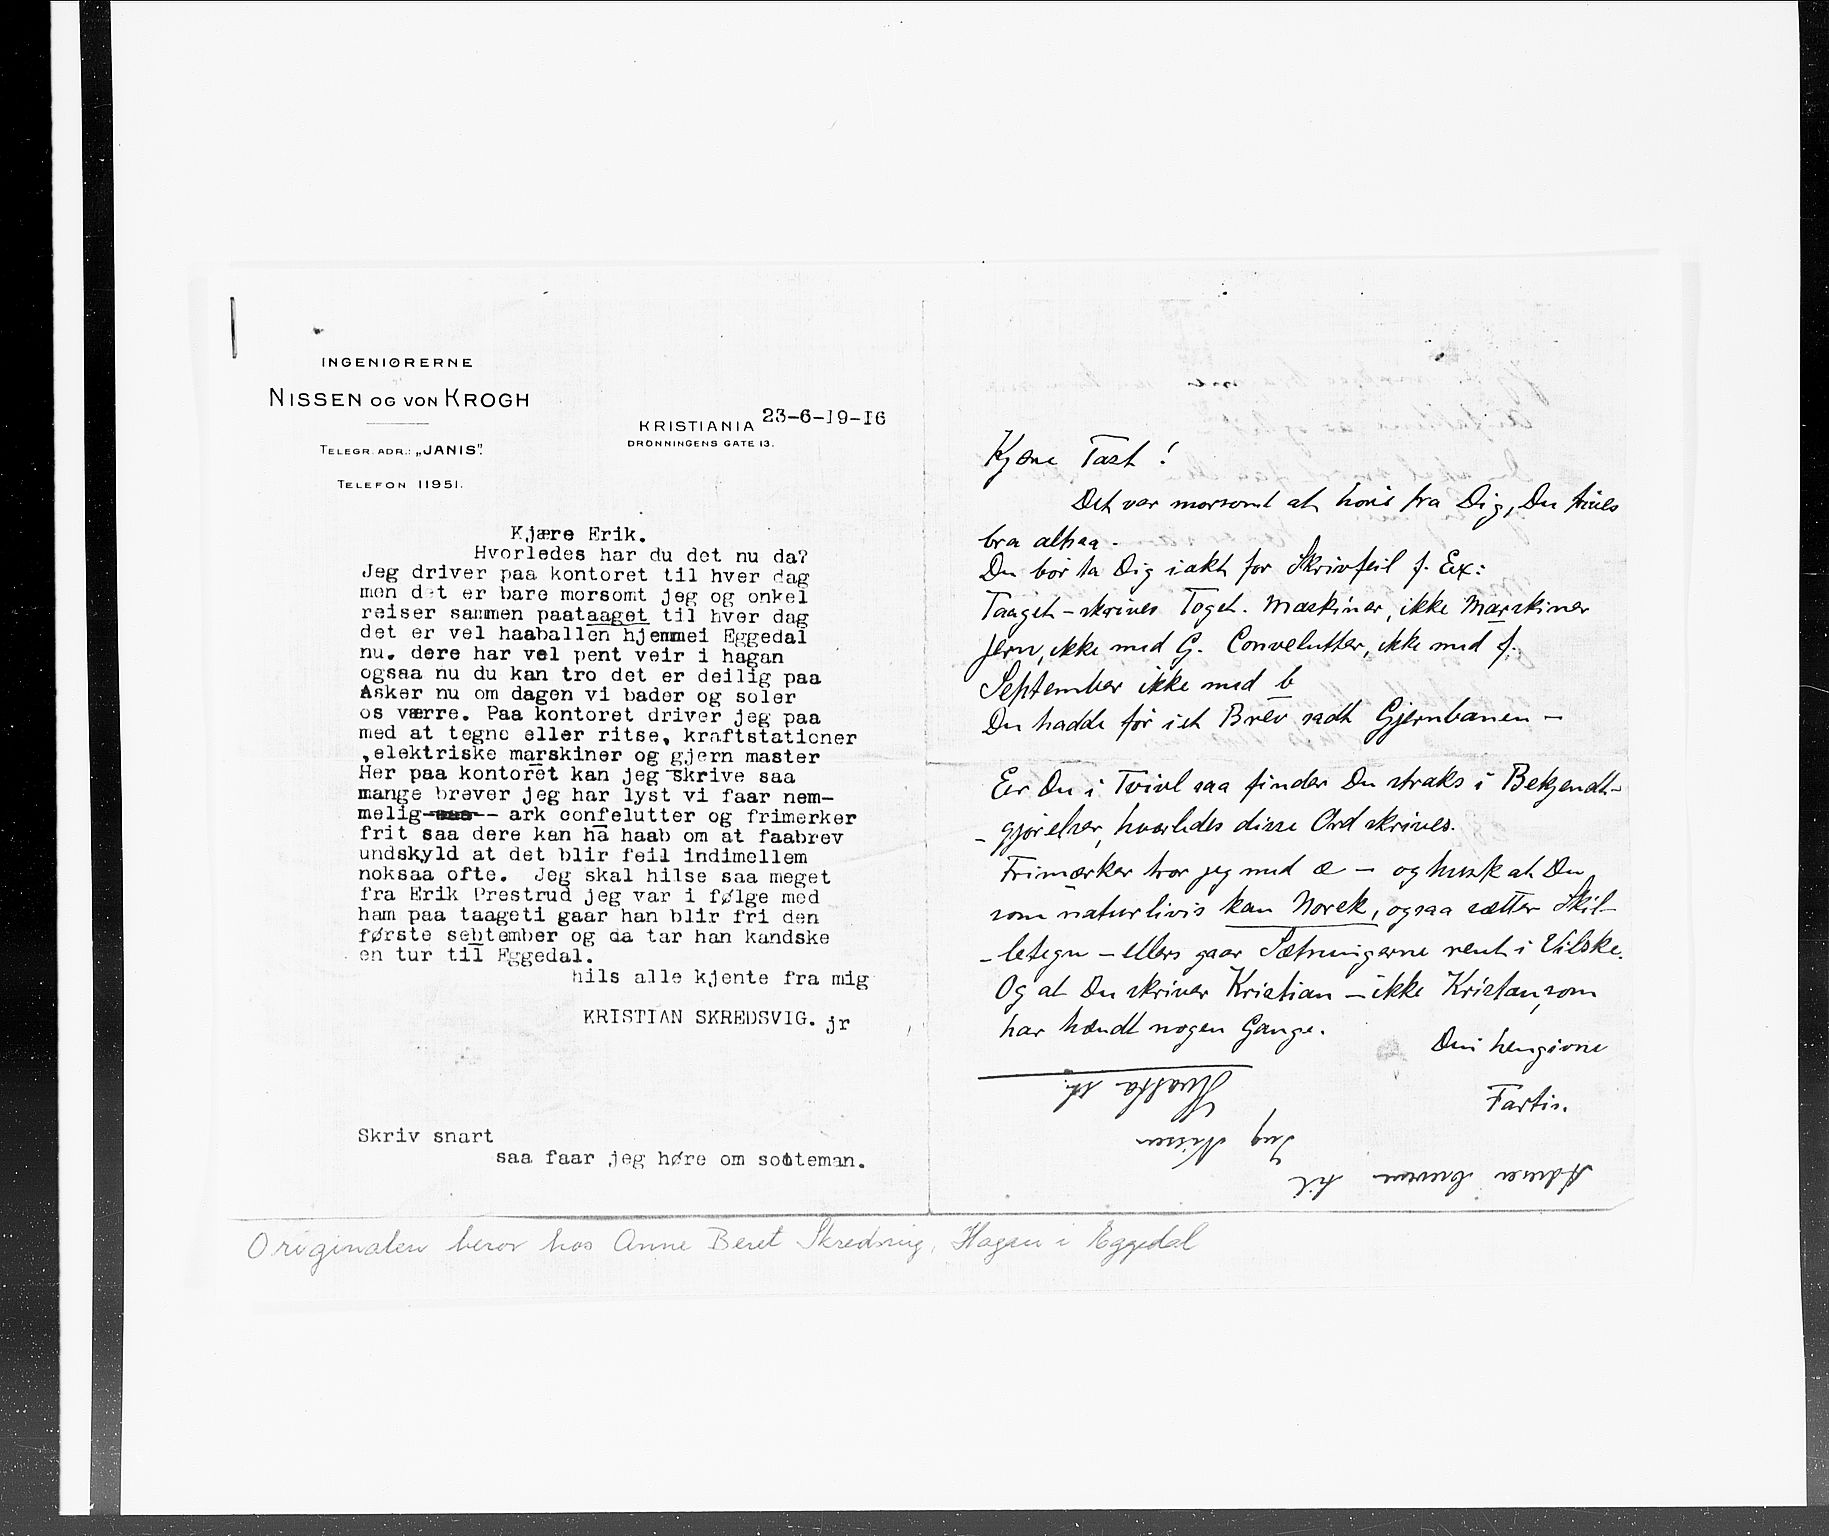 INGENIØRERNE
NISSEN OG VON KROGH
TELEGR. ADR.: „JANIS".
TELEFON 11951.
KRISTIANIA 23-6-19-16
DRONNINGENS GATE 13.
Kjære Erik.
Hvorledes har du det nu da?
Jeg driver paa kontoret til hver dag
men det er bare morsomt jeg og onkel
reiser sammen paataaget til hver dag
det er vel haaballen hjemmei Eggedal
nu. dere har vel pent veir i hagan
ogsaa nu du kan tro det er deilig paa
Asker nu om dagen vi bader og soler
os værre. Paa kontoret driver jeg paa
med at tegne eller ritse, kraftstationer
,elektriske marskiner og gjern master
Her paa kontoret kan jeg skrive saa
mange brever jeg har lyst vi faar nem-
melig ark confelutter og frimerker
frit saa dere kan ha haab om at faabrev
undskyld at det blir feil indimellem
noksaa ofte. Jeg skal hilse saa meget
fra Erik Prestrud jeg var i følge med
ham paa taageti gaar han blir fri den
første sebtember og da tar han kandske
en tur til Eggedal.
hils alle kjente fra mig
KRISTIAN SKREDSVIG. jr
Skriv snart
saa faar jeg høre om sooteman.
Kjære Tast!
Det var morsomt at høre fra Dig, Du trives
bra altsaa.
Du bør ta Dig iakt for Skrivfeil f. Ex:
Taaget - skrives Toget. Maskiner, ikke Marskiner
Jern, ikke med G. Convelutter, ikke med f.
September ikke med b
Du hadde før i et Brev sadt Gjernbanen -
Er Du i Tvivl saa finder Du straks i Bekjendt-
- gjørelser, hvorledes disse Ord skrives.
Frimærker tror jeg med æ - og husk at Du
som naturligvis kan Norsk, ogsaa sætter Skil-
- letegn - ellers gaar Sætningerne rent i Vilske.
Og at Du skriver Kristian - ikke Kristan, som
har hændt nogen Gange.
Din hengivne
Fartis.
Adresser brevene til
Ing Nissen
Hvalstad st.
Originalen beror hos Anne Beret Skredsvig, Hagan i Eggedal